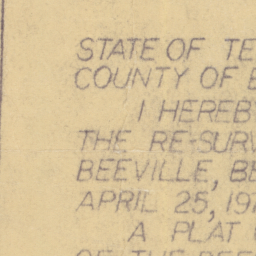 STATE OF TE
COUNTY OF B
I HEREBY
THE RE-SURV
BEEVILLE, BE
APRIL 25, 197
A PLAT
OF THE BEE